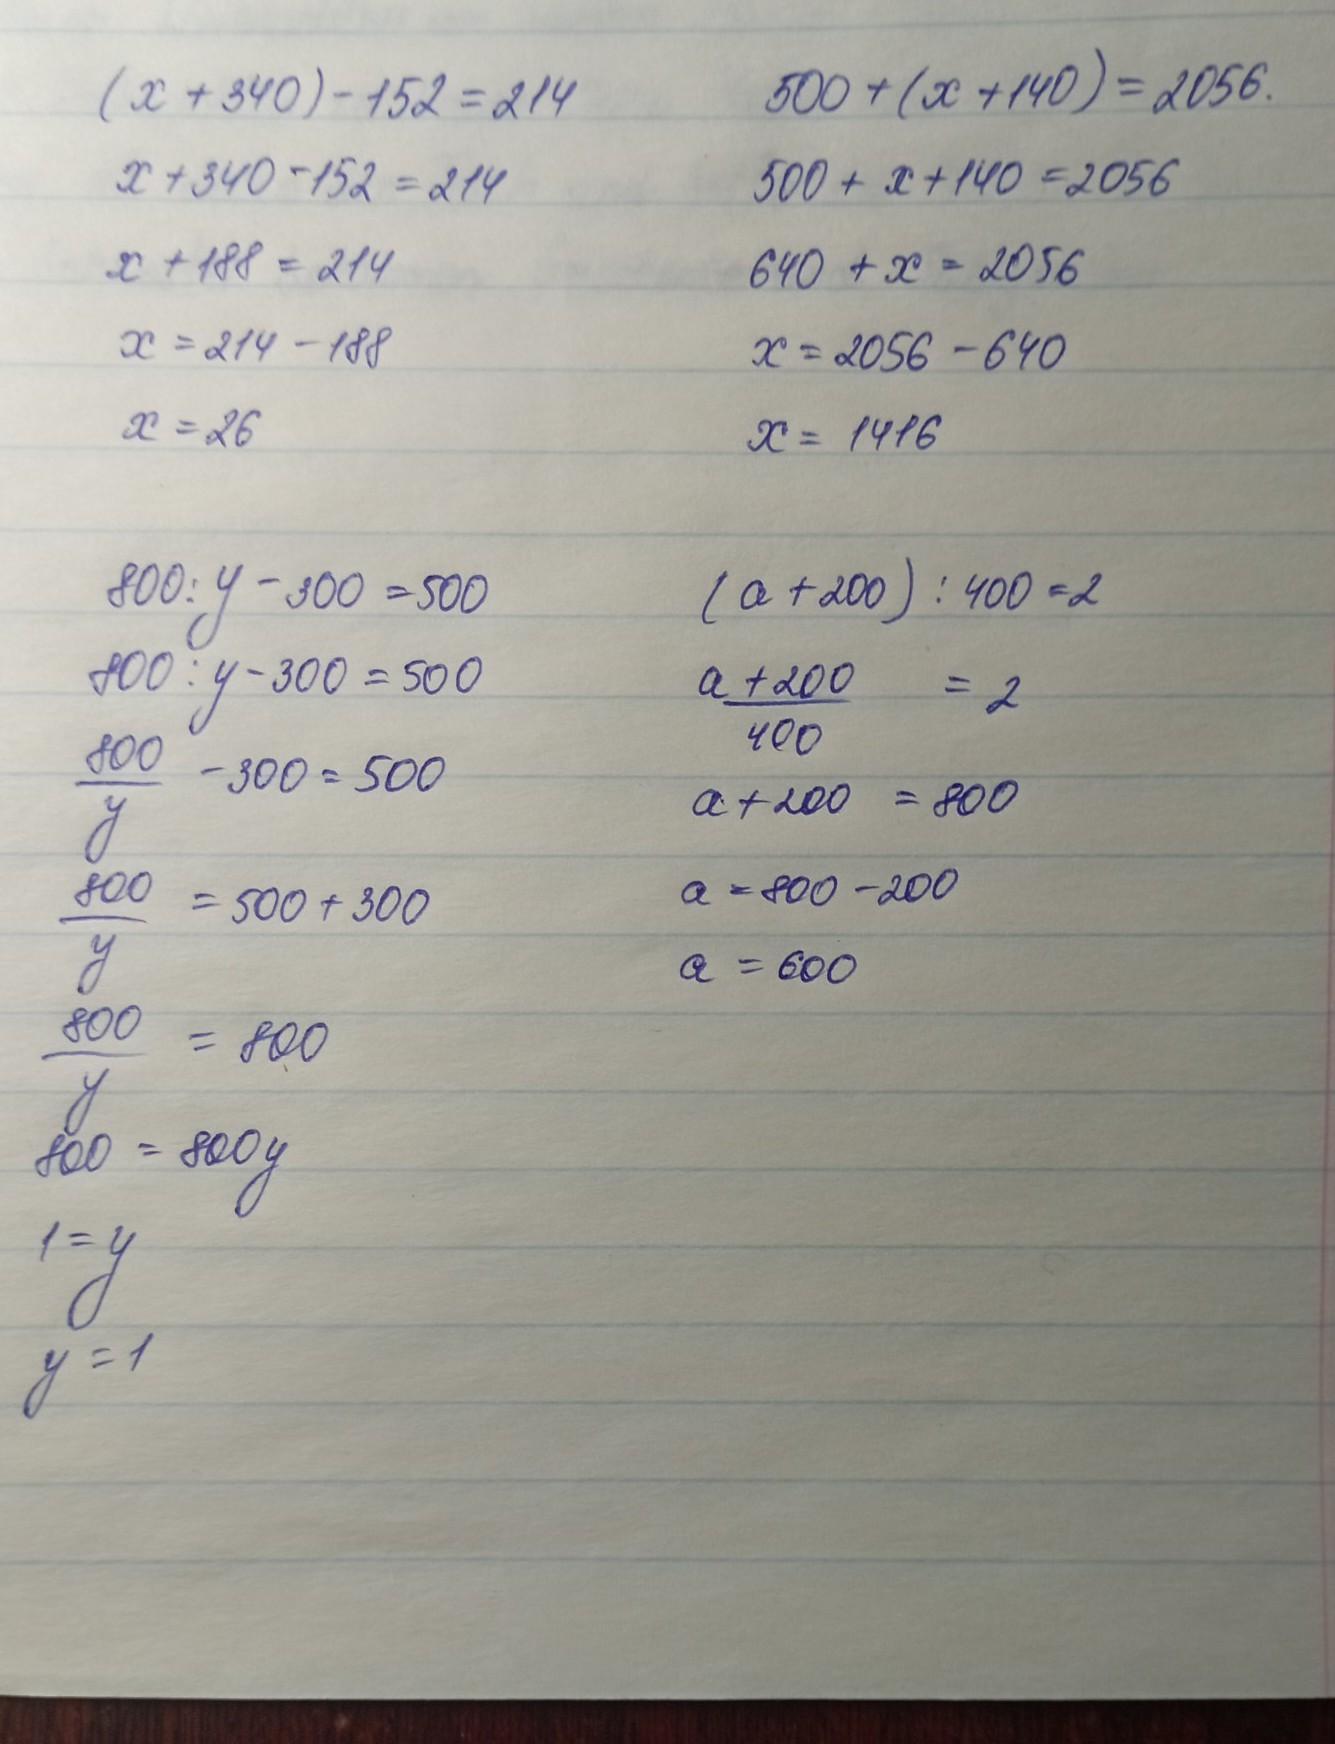 (x + 340) - 152 = 214
x + 340 - 152 = 214
x + 188 = 214
x = 214 - 188
x = 26
500 + (x + 140) = 2056.
500 + x + 140 = 2056
640 + x = 2056
x = 2056 - 640
x = 1416
800 : y - 300 = 500
800 : y - 300 = 500
800/y - 300 = 500
800/y = 500 + 300
800/y = 800
800 = 800y
1 = y
y = 1
(a + 200) : 400 = 2
a + 200/400 = 2
a + 200 = 800
a = 800 - 200
a = 600